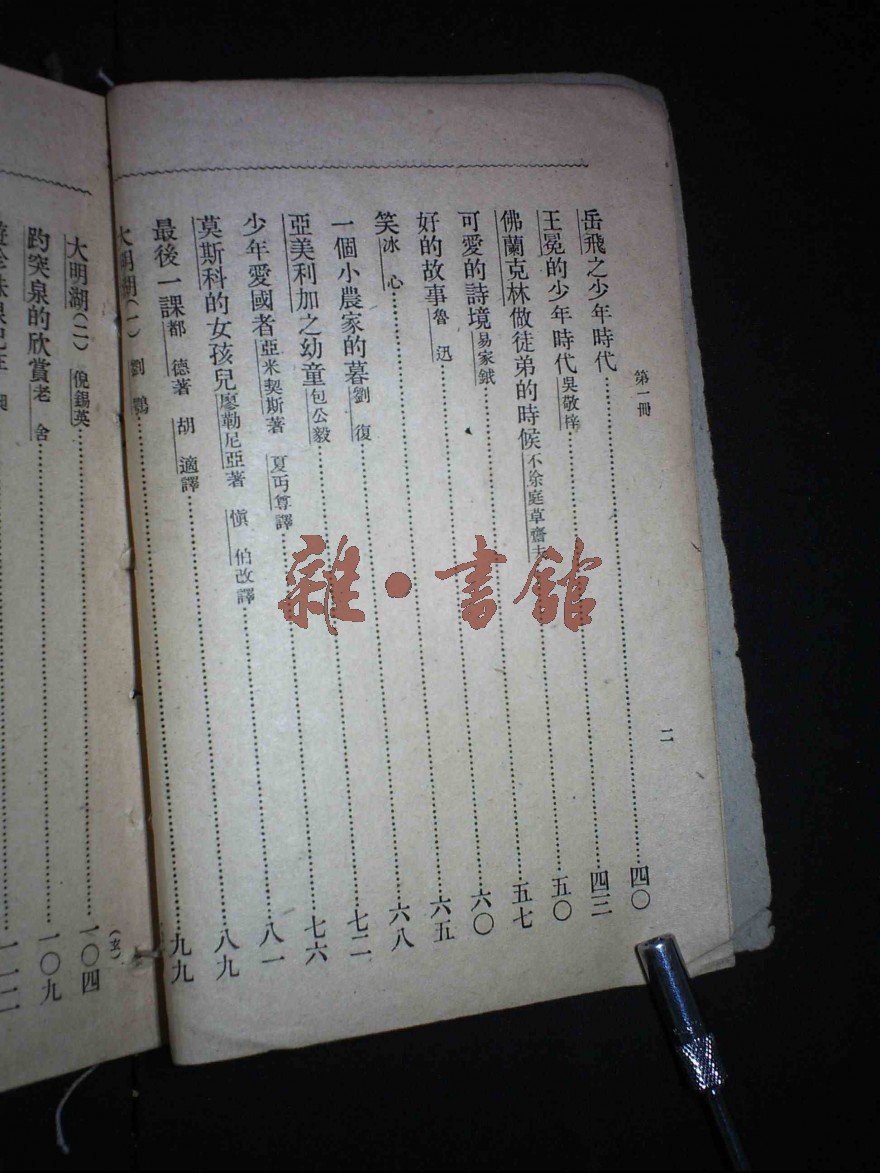 第一冊
二
岳飛之少年時代……四〇
王冕的少年時代 吳敬梓……四三
佛蘭克林做徒弟的時候 不除庭草齋夫……五〇
可愛的詩境 易家鉞……五七
好的故事 魯迅……六〇
笑 冰心……六五
一個小農家的暮 劉復……六八
亞美利加之幼童 包公毅……七二
少年愛國者 亞米契斯著 夏丏尊譯……七六
莫斯科的女孩兒 廖勒尼亞著 愼伯改譯……八一
最後一課 都德著 胡適譯……八九
大明湖(一) 劉鶚……九九
大明湖(二) 倪錫英……一〇四
趵突泉的欣賞 老舍……一〇九
一一二
(玄)
雜·書館